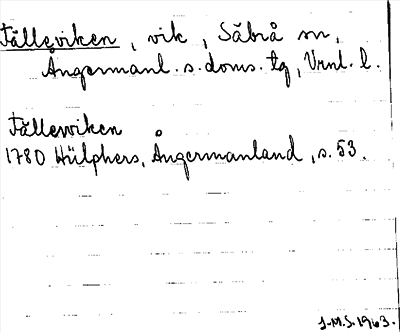 Fälleviken, vik, Säbrå sn,
Ångermanl. s. doms. tg, Vrnl. l.
Fälleviken
1780 Hülphers, Ångermanland, s. 53.
J.M.S. 1963.